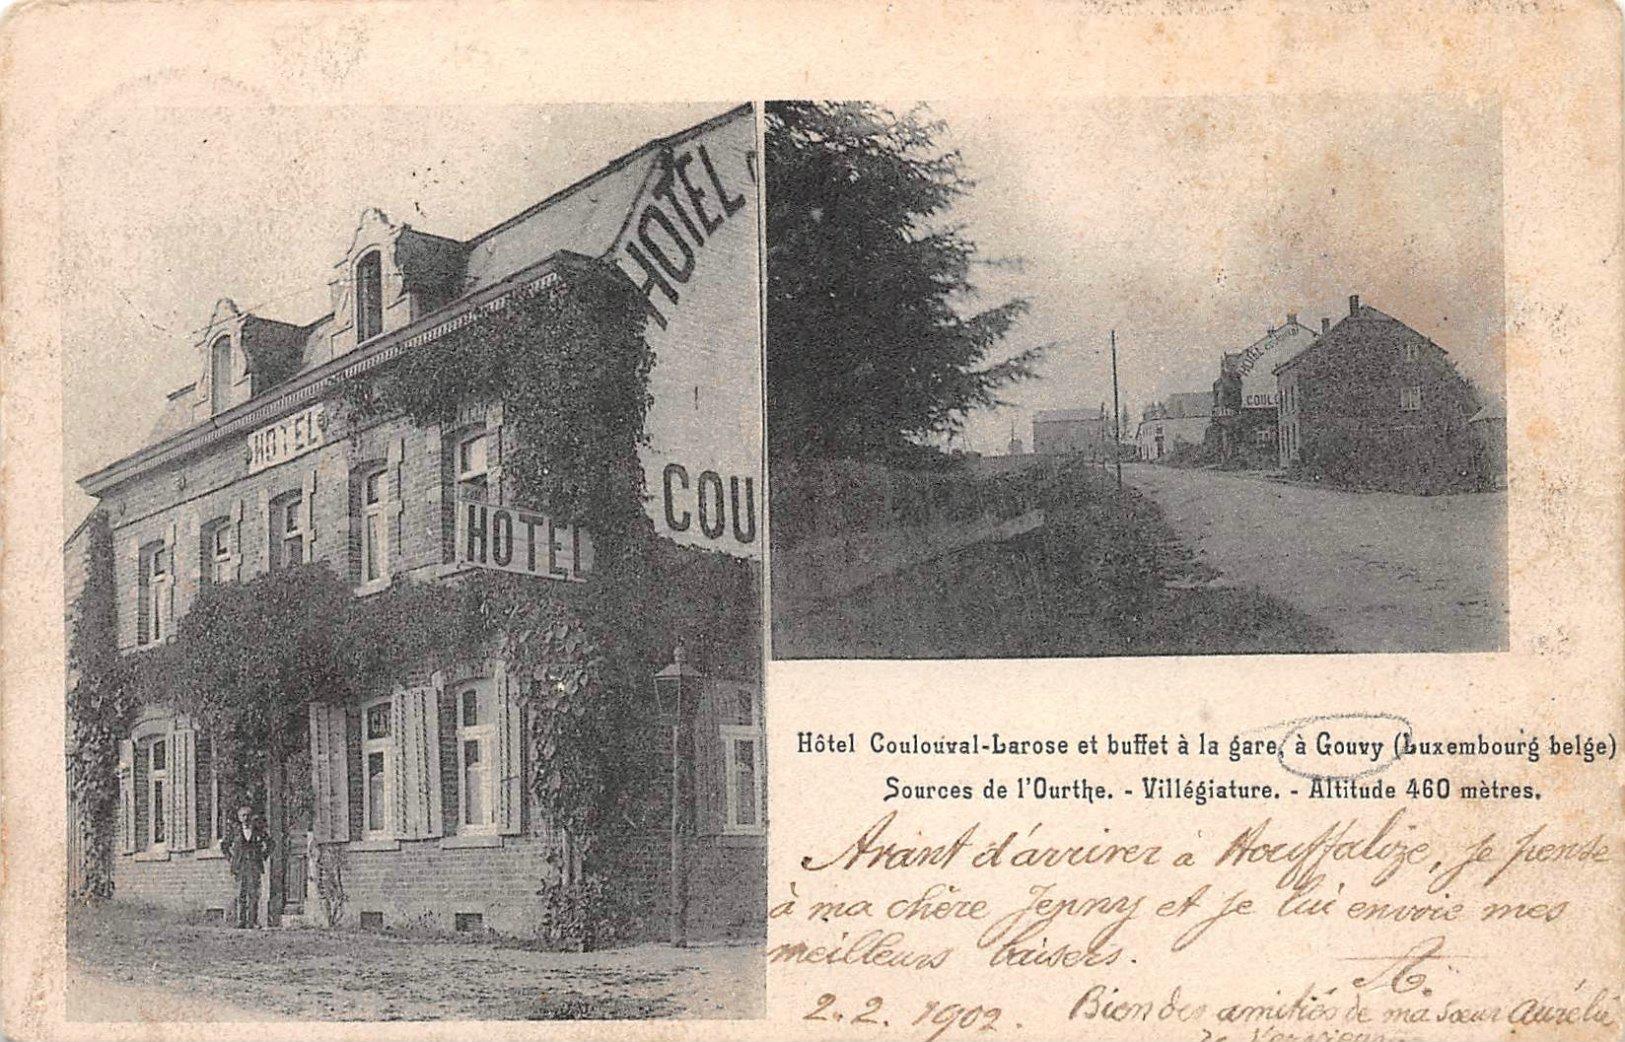 HOTEL
HOTEL
HOTEL
COU
HOTEL
COUL
Hôtel Coulouval-Larose et buffet à la gare, à Gouvy (Luxembourg belge)
Sources de l'Ourthe. - Villégiature. - Altitude 460 mètres.
Avant d'arriver à Houffalize, je pense
à ma chère Jenny et je lui envoie mes
meilleurs baisers.
2.2.1902.
Bien des amitiés de ma sœur Aurélie